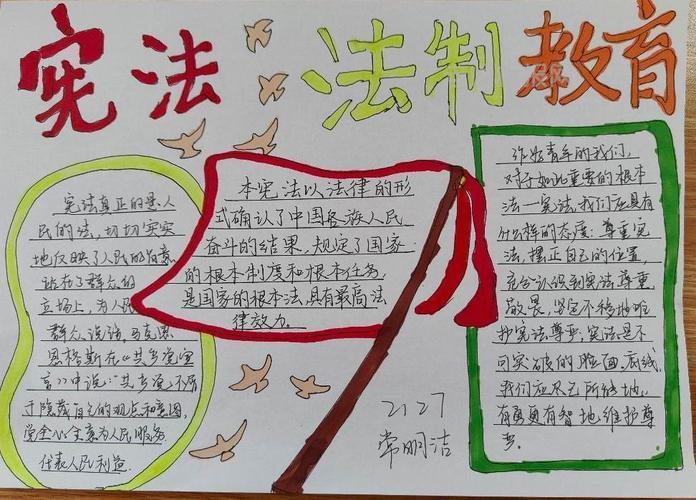 宪法 法制教育
宪法真正的是人
民的法,切切实实
地反映了人民的
站在了群众的
立场上,为人民
群众说话,马克思
恩格斯在《共产党宣
言》中说:"共产党不屑
于隐藏自己的观点和意图,
党全心全意为人民服务
代表人民利益
本宪法以法律的形
式确认了中国各族人民
奋斗的结果,规定了国家
的根本制度和根本任务
是国家的根本法,具有最高法
律效力.
作为青年的我们,
对于如此重要的根本
法一宪法,我们应具有
什么样的态度:尊重宪
法,摆正自己的位置,
充分认识到宪法尊重
敬畏,坚定不移地维
护宪法尊严,宪法是不
可突破的脸面,底线,
我们应尽己所能地,
有勇更有智地维护尊
严.
2127
常明洁